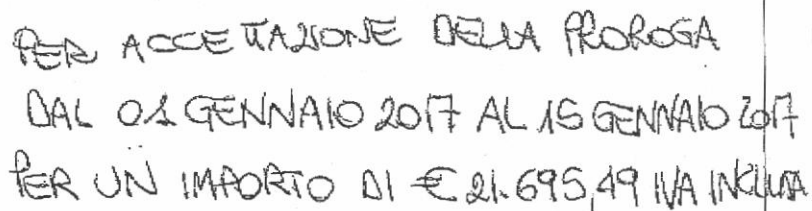 PER ACCETTAZIONE DELLA PROROGA
DAL 01 GENNAIO 2017 AL 15 GENNAIO 2017
PER UN IMPORTO DI € 21.695,49 IVA INCLUSA